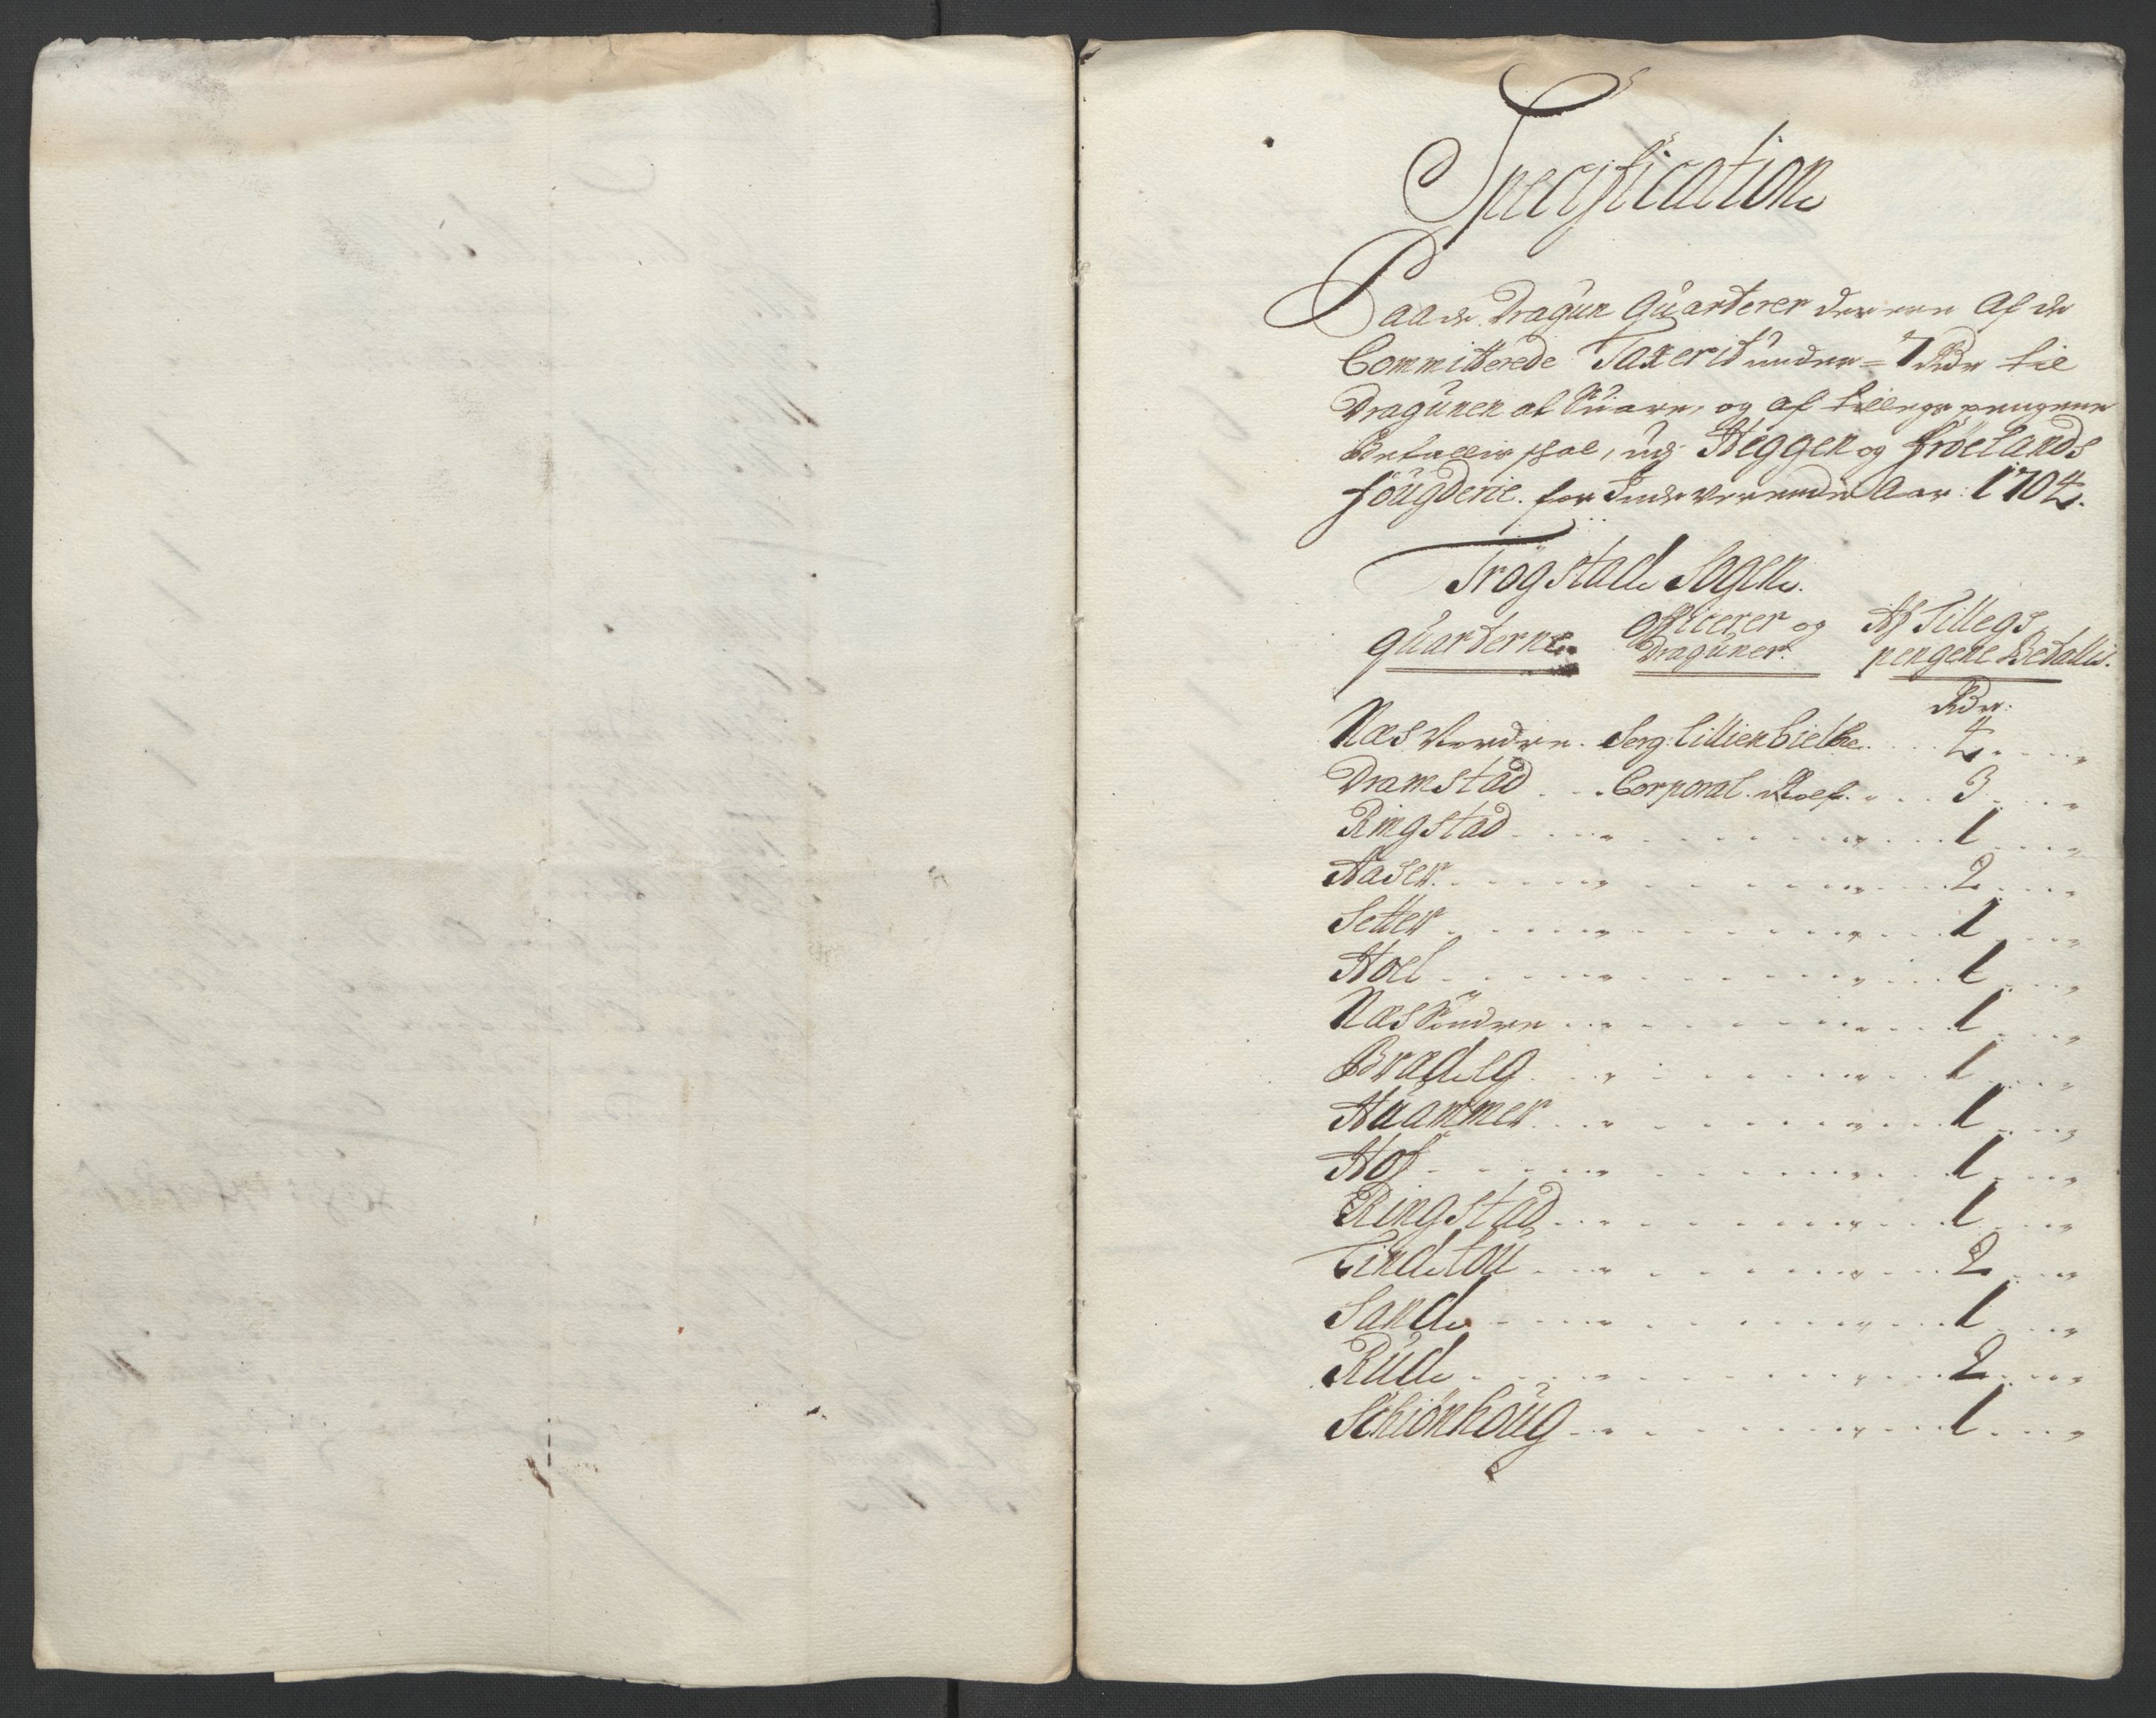 Specification
Paa de Dragun Quarterer der ere Af de
Committerede Taxerit under = 7 Rdr til
Dragunen at Suare, og af tillegs pengene
Betallis skal, udj Heggen og Frölands
fougderie for Inde werende Aar: 1704.
Trögstad Sogen.
Quarterne. Officerer og Dragüner. Af Tillegs pengene Betallis.
Rdr:
Næs Nordre. Serg: Lillienbielke. . . . 4 . . . "
Dramstad . . . Corporal Rolf. " . . . 3 . . . "
Ringstad . . . " . . . " . . . 1 . . . "
Haser . . . " . . . " . . . 2 . . . "
Setter . . . " . . . " . . . 1 . . . "
Hoel . . . " . . . " . . . 1 . . . "
Næs Söndre . . . " . . . " . . . 1 . . . "
Bradeg . . . " . . . " . . . 1 . . . "
Huammer . . . " . . . " . . . 1 . . . "
Hof . . . " . . . " . . . 1 . . . "
Ringstad . . . " . . . " . . . 1 . . . "
Findlou . . . " . . . " . . . 2 . . . "
Sand . . . " . . . " . . . 1 . . . "
Rüd . . . " . . . " . . . 2 . . . "
Schiönhoug . . . " . . . " . . . 1 . . . "